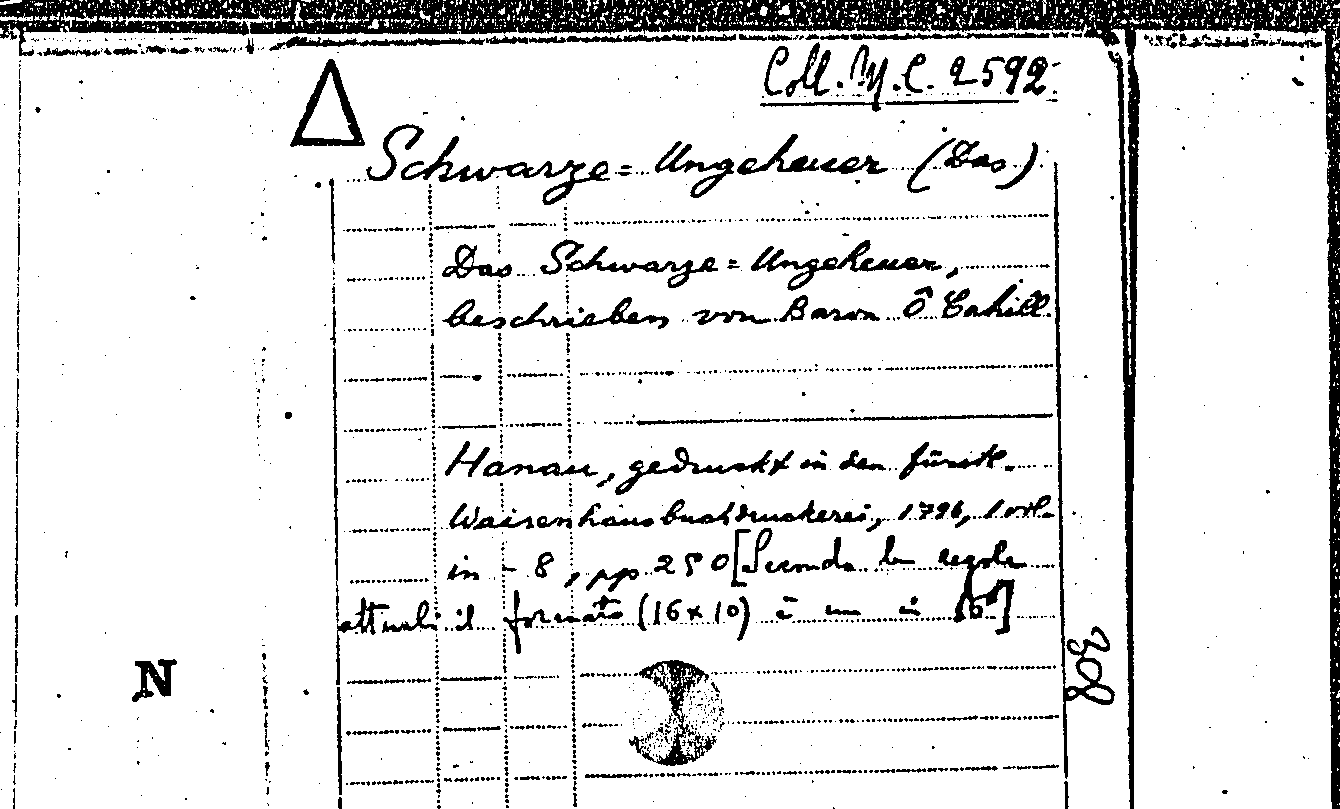 Coll. M. C. 2592.
Schwarze = Ungeheuer (Das)
Das Schwarze = Ungeheuer,
beschrieben von Baron Ô Cahill.
Hanau, gedruckt in der fürstl.
Waisenhausbuchdruckerei, 1796, 1 vol.
in - 8, pp 250 [Secondo le regole
attuali il formato (16 x 10) è un in 16°]
308
N